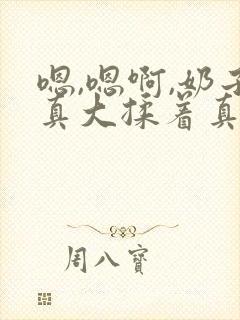 嗯,嗯啊,奶子
真大揉着真
周八寶